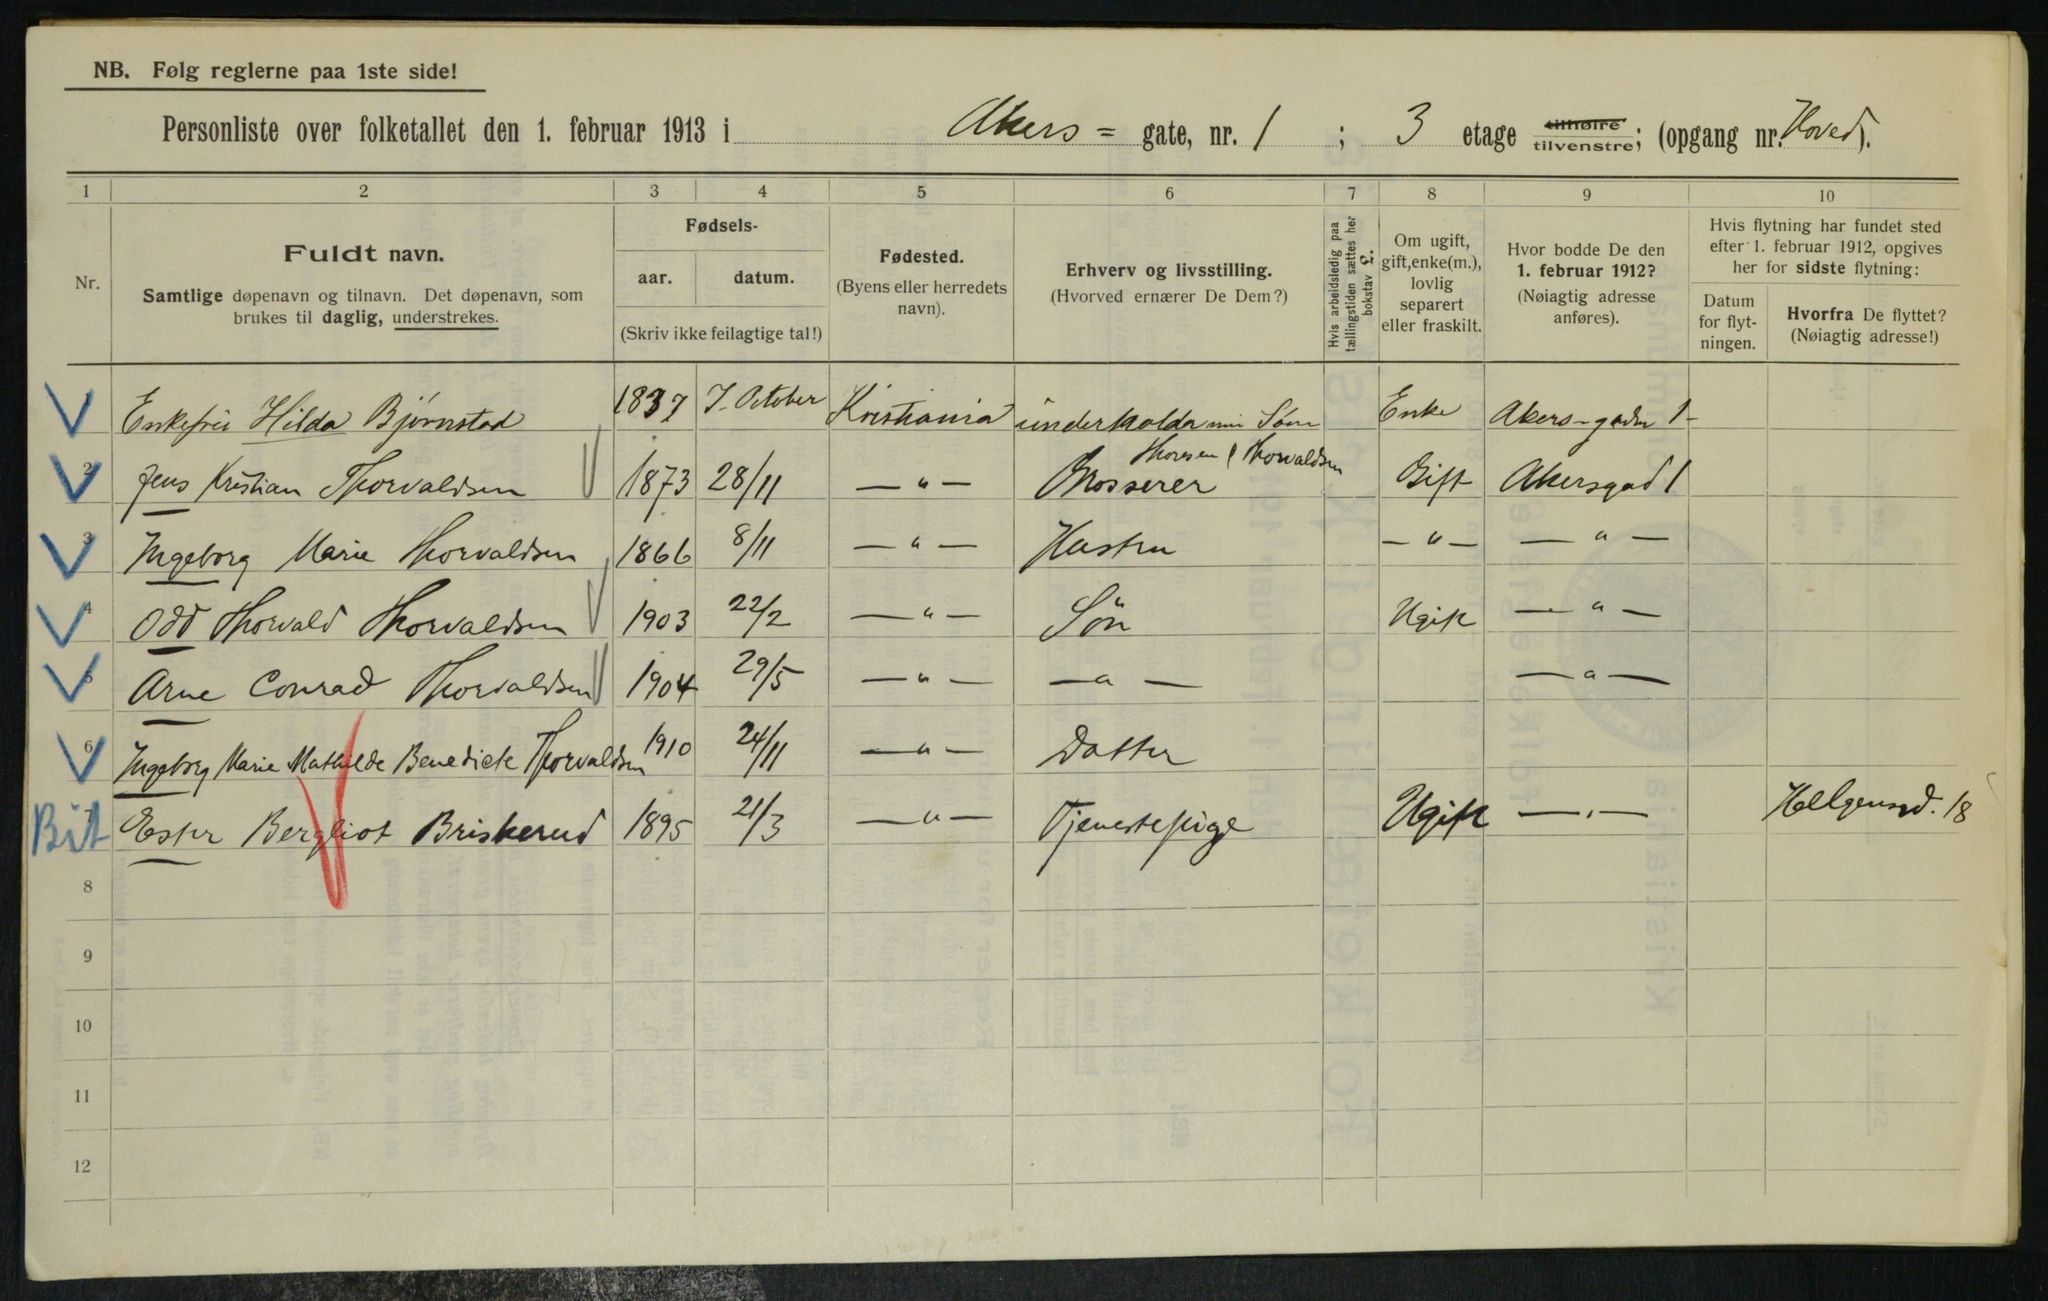 NB. Følg reglerne paa 1ste side!
Personliste over folketallet den 1. februar 1913 i Akers= gate, nr. 1 ; 3 etage tilhøire tilvenstre; (opgang nr. Hoved).
1 2 3 4 5 6 7 8 9 10
Nr.
Fuldt navn.
Samtlige døpenavn og tilnavn. Det døpenavn, som
brukes til daglig, understrekes.
Fødsels-
aar. datum.
(Skriv ikke feilagtige tal!)
Fødested.
(Byens eller herredets
navn).
Erhverv og livsstilling.
(Hvorved ernærer De Dem?)
Hvis arbeidsledig paa
tællingstiden sættes her
bokstav L.
Om ugift,
gift, enke(m.),
lovlig
separert
eller fraskilt.
Hvor bodde De den
1. februar 1912?
(Nøiagtig adresse
anføres).
Hvis flytning har fundet sted
efter 1. februar 1912, opgives
her for sidste flytning:
Datum
for flyt-
ningen.
Hvorfra De flyttet?
(Nøiagtig adresse!)
Enkefru Hilda Bjørnstad 1837 7. October Kristiania underholdes min Søn Enke Akers-gaden 1-
Thoresen & Thorvaldsen
2 Jens Kristian Thorvaldsen 1873 28/11 — " — Grosserer Gift Akersgad 1
3 Ingeborg Marie Thorvaldsen 1866 8/11 — " — Hustru — " — — " —
4 Odd Thorvald Thorvaldsen 1903 22/2 — " — Søn Ugift — " —
5 Arne Conrad Thorvaldsen 1904 29/5 — " — — " — — " —
6 Ingeborg Marie Mathilde Benedicte Thorvaldsen 1910 24/11 — " — Datter
Bit Ester Bergliot Briskerud 1895 21/3 — " — Tjenestepige Ugift — " — 18
8
9
10
11
12